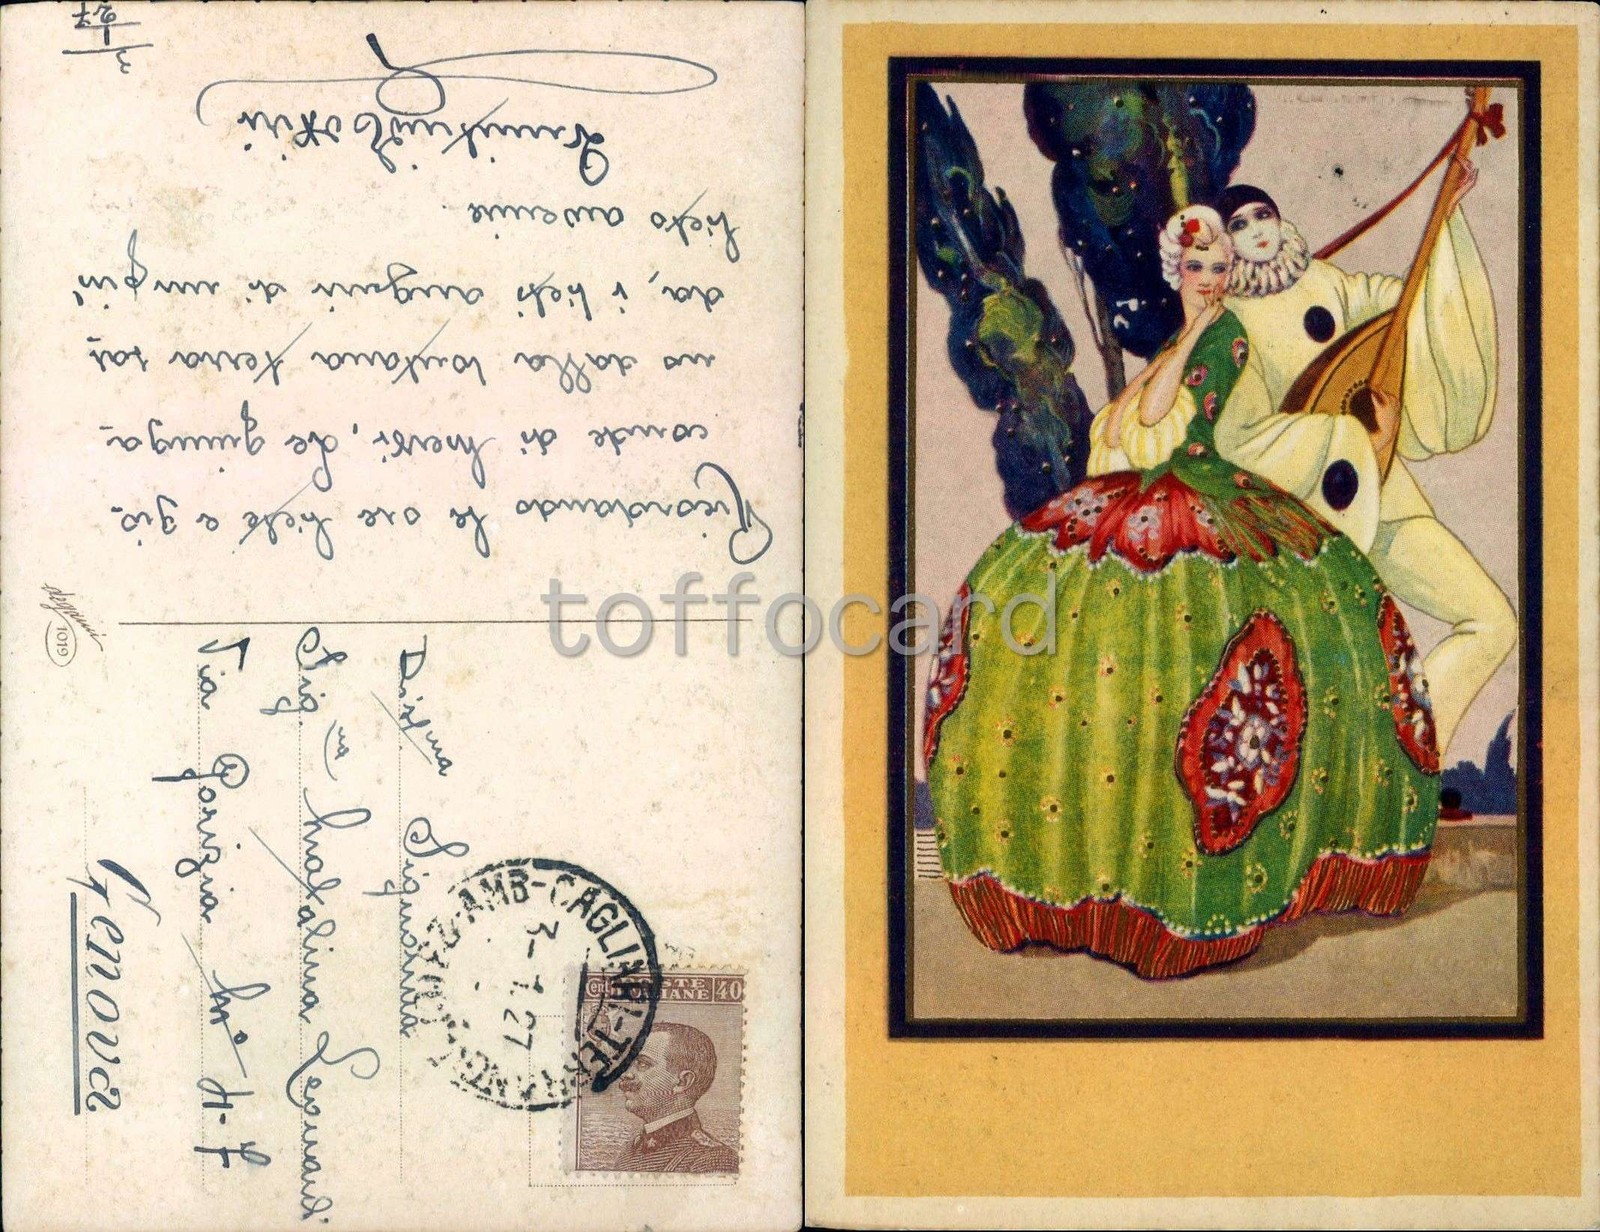 2/1-27
Ricordando le ore liete e gio-
conde di Nervi, Le giunga-
no dalla lontana terra sar-
da, i lieti auguri di un più
lieto avvenire.
Degami
1019
Dist.ma Signorina
Sig.na Natalina Leonardi
Via Gorizia N° 4-7
Genova
AMB-CAGLIARI-TERRANOVA
3-1.27
POSTE ITALIANE
Cent 40
toffocard